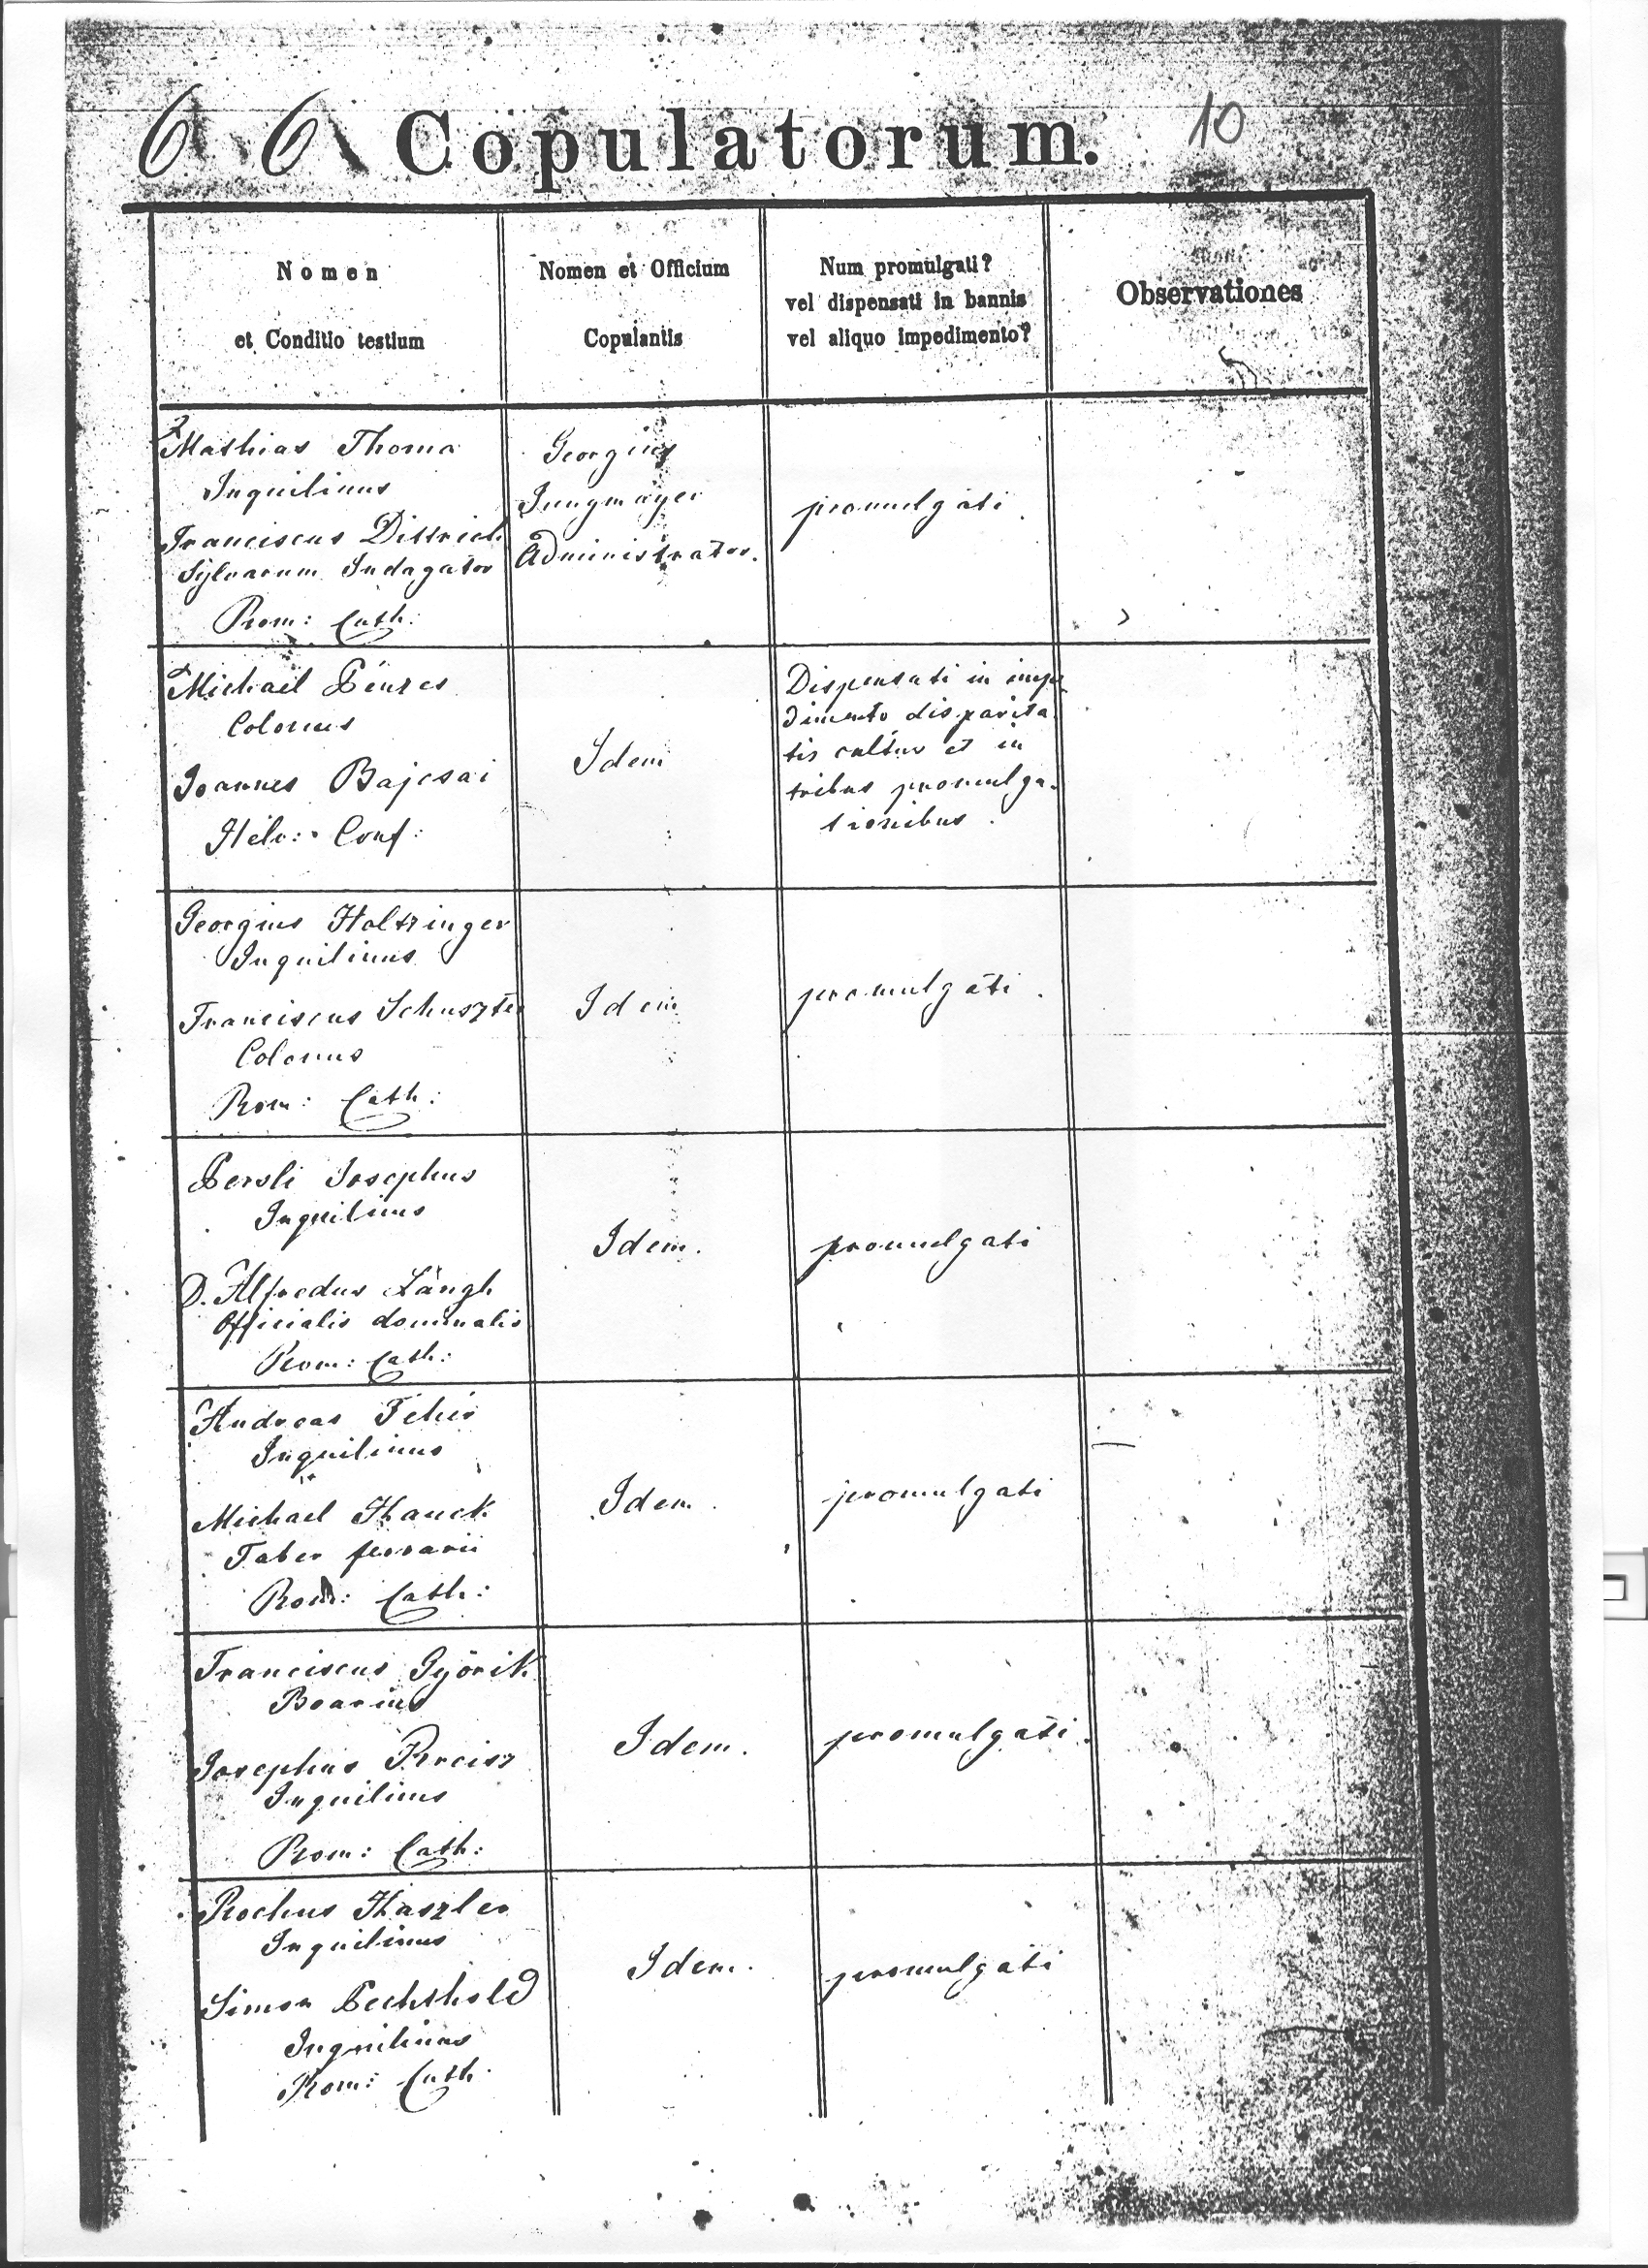 66 Copulatorum. 10
Nomen
et Conditio testium
Nomen et Officium
Copulantis
Num promulgati?
vel dispensati in bannis
vel aliquo impedimento?
Observationes
Mathias Thoma
Inquilinus
Franciscus Dittrich
Sylvarum Indagator
Rom: Cath:
Georgius
Jungmayer
Administrator.
promulgati.
Michail Bénzes
Colonus
Joannes Bajcsai
Helv: Conf:
Idem
Dispensati in impe
dimento disparita
tis cultus et in
tribus promulga-
tionibus.
Georgius Holtzinger
Inquilinus
Franciscus Schuszter
Colonus
Rom: Cath:
Idem
promulgati.
Josephus
Inquilinus
D. Alfredus Lángh
Officialis dominalis
Rom: Cath:
Idem.
promulgati
Andreas Fehér
Inquilinus
Michael Hauck
Faber ferrarii
Rom: Cath:
Idem.
promulgati
Franciscus Györik
Boarius
Josephus Kreisz
Inquilinus
Rom: Cath:
Idem.
promulgati.
Rochus Haszler
Inquilinus
Simon Bechthold
Inquilinus
Rom: Cath.
Idem.
promulgati